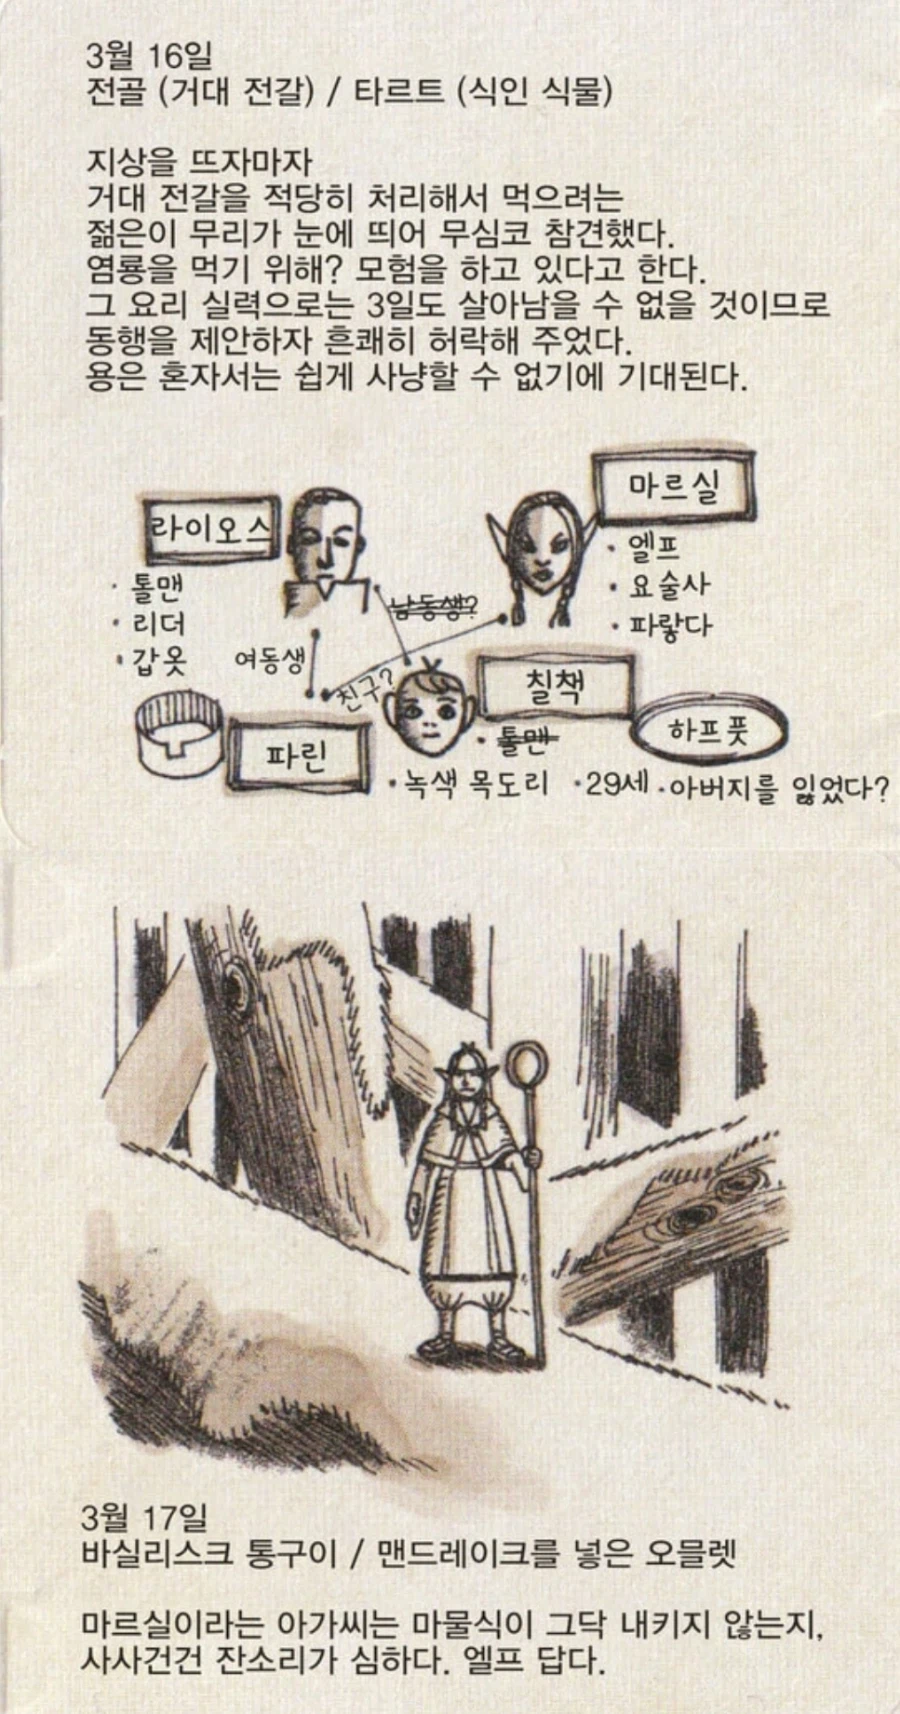 3월 16일
전골 (거대 전갈) / 타르트 (식인 식물)
지상을 뜨자마자
거대 전갈을 적당히 처리해서 먹으려는
젊은이 무리가 눈에 띄어 무심코 참견했다.
염룡을 먹기 위해? 모험을 하고 있다고 한다.
그 요리 실력으로는 3일도 살아남을 수 없을 것이므로
동행을 제안하자 흔쾌히 허락해 주었다.
용은 혼자서는 쉽게 사냥할 수 없기에 기대된다.
라이오스
· 톨맨
· 리더
· 갑옷
마르실
· 엘프
· 요술사
· 파랗다
남동생?
여동생
친구?
파린
칠책
· 톨맨
하프풋
· 녹색 목도리 · 29세 · 아버지를 잃었다?
3월 17일
바실리스크 통구이 / 맨드레이크를 넣은 오믈렛
마르실이라는 아가씨는 마물식이 그닥 내키지 않는지,
사사건건 잔소리가 심하다. 엘프 답다.